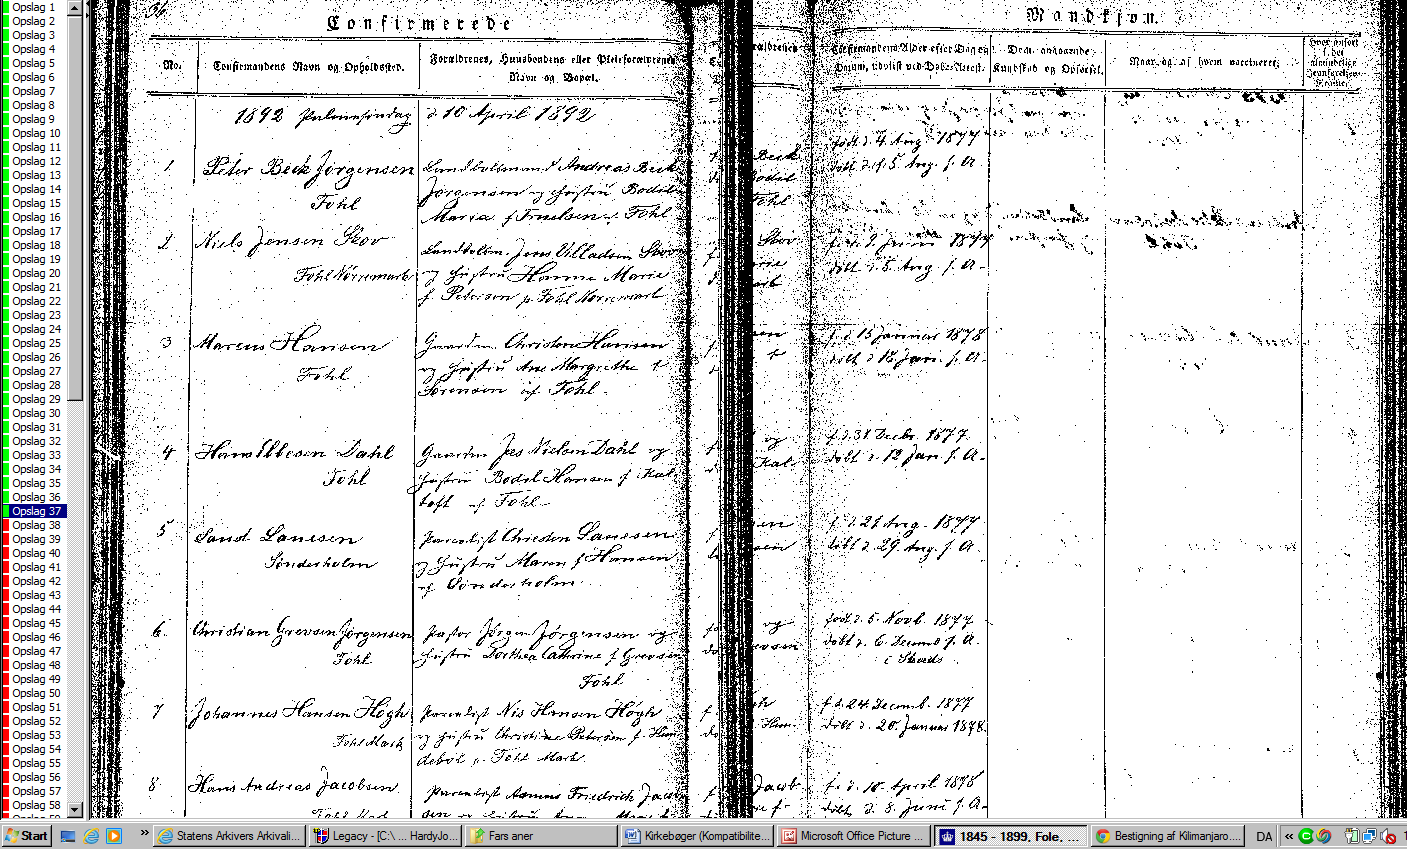 Opslag 1
Opslag 2
Opslag 3
Opslag 4
Opslag 5
Opslag 6
Opslag 7
Opslag 8
Opslag 9
Opslag 10
Opslag 11
Opslag 12
Opslag 13
Opslag 14
Opslag 15
Opslag 16
Opslag 17
Opslag 18
Opslag 19
Opslag 20
Opslag 21
Opslag 22
Opslag 23
Opslag 24
Opslag 25
Opslag 26
Opslag 27
Opslag 28
Opslag 29
Opslag 30
Opslag 31
Opslag 32
Opslag 33
Opslag 34
Opslag 35
Opslag 36
Opslag 37
Opslag 38
Opslag 39
Opslag 40
Opslag 41
Opslag 42
Opslag 43
Opslag 44
Opslag 45
Opslag 46
Opslag 47
Opslag 48
Opslag 49
Opslag 50
Opslag 51
Opslag 52
Opslag 53
Opslag 54
Opslag 55
Opslag 56
Opslag 57
Opslag 58
36.
Confirmerede
No.
Confirmandens Navn og Opholdssted.
Forældrenes, Huusbondens eller Pleieforældrenes
Navn og Bopæl.
1892 Palmesøndag d 10 April 1892
1
Peter Beck Jørgensen
Fohl
Landbolsmand Andreas Beck
Jørgensen og Hustru Bodil
Maria f. Fohl
2
Niels Jensen Skov
Fohl Nørremark
Landbolsm. Jens Villadsen Skov
og Hustru Hanne Marie
f. Petersen p. Fohl Nørremark
3
Marcus Hansen
Fohl
Gaardm. Christen Hansen
og Hustru Ane Margrethe f
Sørensen af Fohl.
4
Hans Ebbesen Dahl
Fohl
Gaardm Jes Nielsen Dahl og
Hustru Bodil Hansen f Kal
toft af Fohl
5
Laust Lauesen
Sønderholm
Parcellist Christen Lauesen
og Hustru Maren f Hansen
af Sønderholm.
6.
Christian Grevsen Jørgensen
Fohl
Pastor Jørgen Jørgensen og
Hustru Dorthea Cathrine f Grevsen
Fohl
7
Johannes Hansen Høgh
Fohl Mark
Parcellist Nis Hansen Høgh
og Hustru Christine Petersen f. Hun
debøl p. Fohl Mark
8
Hans Andreas Jacobsen
Parcellist Asmus Friedrich Jacob
Mandkjøn.
Confirmandens Alder efter Dag og
Datum, udviist ved Døbe-Attest.
Dom angaaende
Kundskab og Opførsel.
Naar, og af hvem vaccineret;
Hvor anført
i det
almindelige
Jevnførelses-
Register.
født d. 4 Aug. 1877
døbt d. 5 Aug. s. A.
f. d. 2 Juni 1877
døbt d. 5. Aug. s. A.
f. d 15 Januar 1878
døbt d 18 Jan. s. A.
f. d. 31 Decbr. 1877.
døbt d. 12 Jan. s. A.
f. d. 21 Aug. 1877
døbt d. 29. Aug. s. A.
født d. 5. Novb. 1877
døbt d. 6. Decemb s. A
f d. 24. Decemb. 1877
døbt d. 20. Januar 1878.
f. d. 10. April 1878
døbt d. 8. Juni s. A.
Start
»
Statens Arkivers Arkivali...
Legacy - [C:\ ... HardyJo...
Fars aner
Kirkebøger (Kompatibilite...
Microsoft Office Picture ...
1845 - 1899, Fole, ...
Bestigning af Kilimanjaro....
DA
«